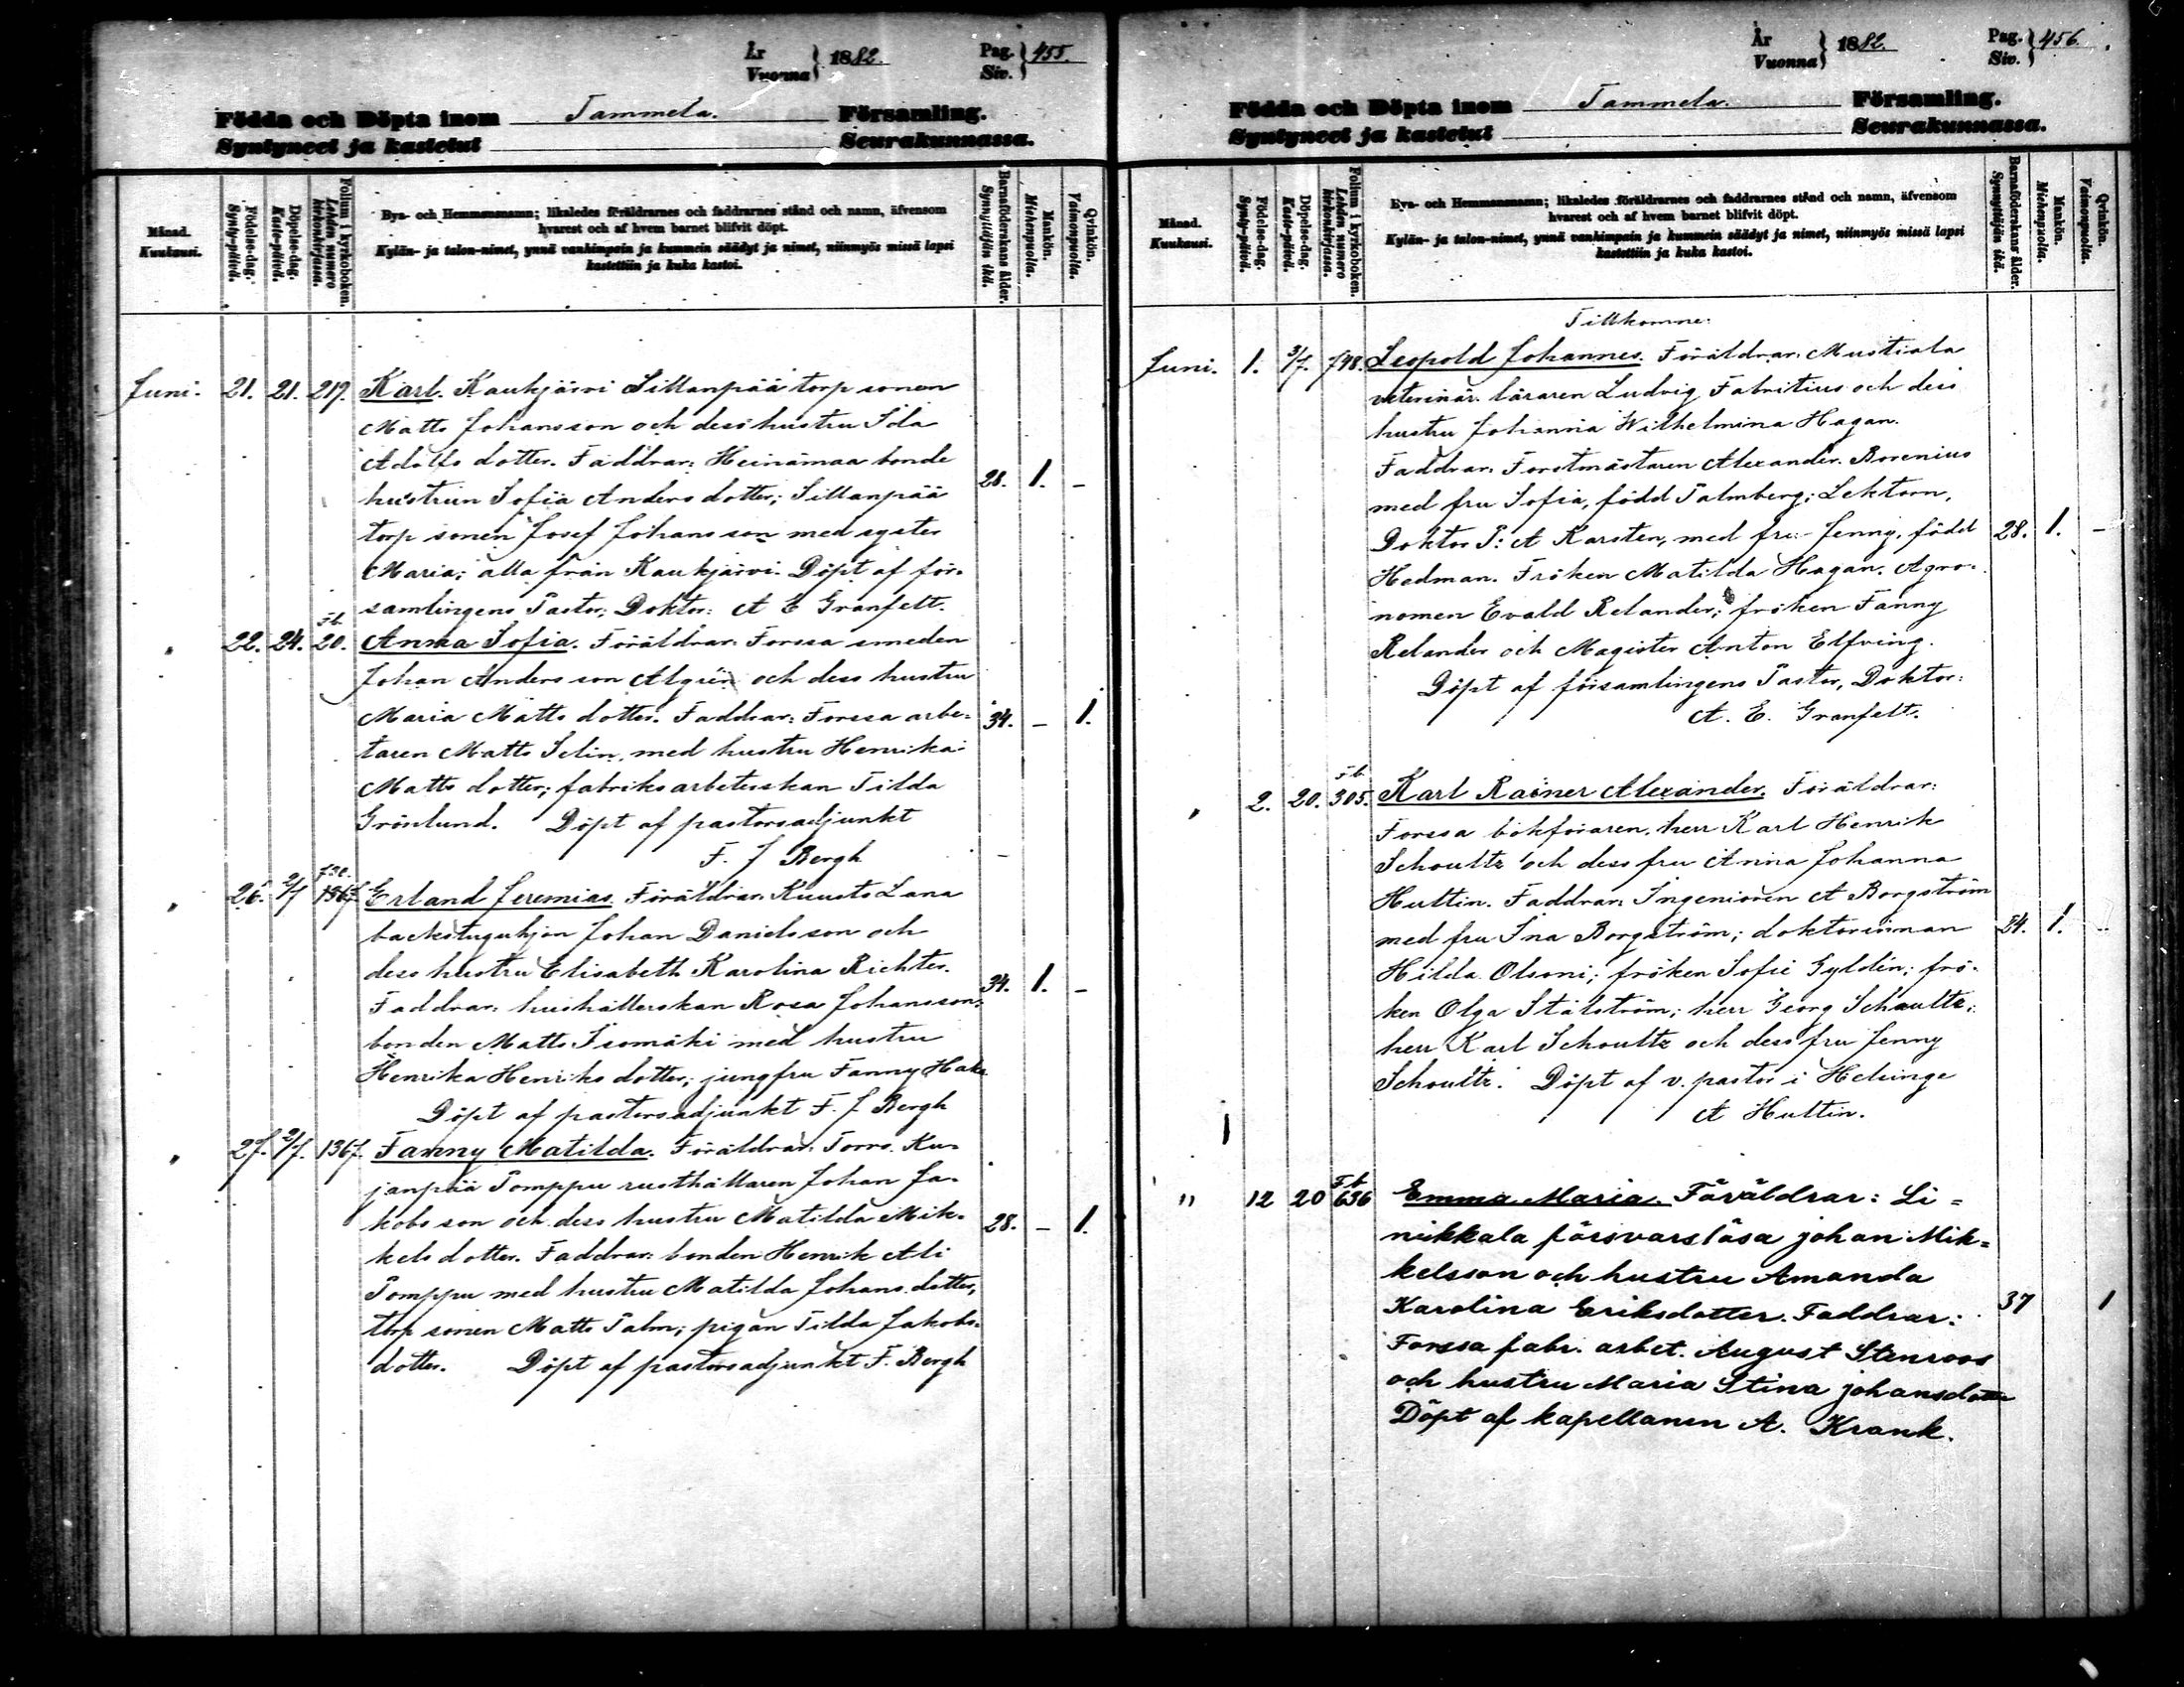 År
Vuonna } 1882. Pag.
Siv. } 455.
Födda och Döpta inom Tammela. Församling.
Syntyneet ja kastetut Seurakunnassa.
Månad.
Kuukausi.
Födelse-dag.
Synty-päivä.
Döpelse-dag.
Kaste-päivä.
Folium i kyrkoboken.
Lehden numero
kirkonkirjassa.
Bya- och Hemmansnamn; likaledes föräldrarnes och faddrarnes stånd och namn, äfvensom
hvarest och af hvem barnet blifvit döpt.
Kylän- ja talon-nimet, ynnä vanhimpain ja kummein säädyt ja nimet, niinmyös missä lapsi
kastettiin ja kuka kastoi.
Barnaföderskans ålder.
Synnyttäjän ikä.
Mankön.
Miehenpuolta.
Qvinkön.
Vaimonpuolta.
Juni. 21. 21. 217. Karl. Kaukjärvi Sillanpää torp sonen
Matts Johansson och dess hustru Ida
Adolfs dotter. Faddrar: Heinämaa bonde
hustrun Sofia Anders dotter; Sillanpää 28. 1. -
torp sonen Josef Johansson med syster
Maria; alla från Kaukjärvi. Döpt af för-
samlingens Pastor, Doktor: A E Granfelt.
" 22. 24. Fb. 20. Anna Sofia. Föräldrar: Forssa smeden
Johan Andersson Algrén och dess hustru
Maria Matts dotter. Faddrar: Forssa arbe- 34. - 1.
taren Matts Selin, med hustru Henrika
Matts dotter; fabriksarbeterskan Tilda
Grönlund. Döpt af pastorsadjunkt
F. J Bergh
" 26. 2/7 1367 Erland Jeremias. Föräldrar: Kuusto Lana
backstuguhjon Johan Danielsson och
dess hustru Elisabeth Karolina Richter. 34. 1. -
Faddrar: hushållerskan Rosa Johansson;
bonden Matts Isomäki med hustru
Henrika Henriks dotter; jungfru Fanny Hake
Döpt af pastorsadjunkt F. J Bergh
" 27. 2/7. 1367. Fanny Matilda. Föräldrar: Torro. Ku-
janpää Pomppu rusthållaren Johan Ja-
kobsson och dess hustru Matilda Mik- 28. - 1.
kels dotter. Faddrar: bonden Henrik Ali
Pomppu med hustru Matilda Johans dotter,
torp sonen Matts Palm; pigan Tilda Jakobs-
dotter. Döpt af pastorsadjunkt F. Bergh
År
Vuonna } 1882. Pag.
Siv. } 456.
Födda och Döpta inom Tammela. Församling.
Syntyneet ja kastetut Seurakunnassa.
Månad.
Kuukausi.
Födelse-dag.
Synty-päivä.
Döpelse-dag.
Kaste-päivä.
Folium i kyrkoboken.
Lehden numero
kirkonkirjassa.
Bya- och Hemmansnamn; likaledes föräldrarnes och faddrarnes stånd och namn, äfvensom
hvarest och af hvem barnet blifvit döpt.
Kylän- ja talon-nimet, ynnä vanhimpain ja kummein säädyt ja nimet, niinmyös missä lapsi
kastettiin ja kuka kastoi.
Barnaföderskans ålder.
Synnyttäjän ikä.
Mankön.
Miehenpuolta.
Qvinkön.
Vaimonpuolta.
Tillkomne:
Juni. 1. 3/7. 748. Leopold Johannes. Föräldrar: Mustiala
veterinär. läraren Ludvig Fabritius och dess
hustru Johanna Wilhelmina Hagan.
Faddrar: Forstmästaren Alexander Borenius
med fru Sofia, född Palmberg; Lektorn,
Doktor P: A Karsten, med fru Jenny, född 28. 1. -
Hedman. Fröken Matilda Hagan. Agro-
nomen Evald Relander; fröken Fanny
Relander och Magister Anton Elfving.
Döpt af församlingens Pastor, Doktor:
A. E. Granfelt.
" 2. 20. Fb. 305. Karl Rainer Alexander. Föräldrar:
Forssa bokföraren, herr Karl Henrik
Schoultz och dess fru Anna Johanna
Huttin. Faddrar: Ingeniören A Borgström
med fru Ina Borgström; doktorinnan 24. 1. -
Hilda Olsoni; fröken Sofie Gyldén; frö-
ken Olga Stålström; herr Georg Schoultz;
herr Karl Schoultz och dess fru Jenny
Schoultz. Döpt af v. pastor i Helsinge
A Huttin.
" 12 20 Fb 636 Emma Maria. Föräldrar: Li=
nikkala försvarslösa johan Mik=
kelsson och hustru Amanda
Karolina Eriksdotter. Faddrar: 37 1
Forssa fabr. arbet. August Stenroos
och hustru Maria Stina johansdotter
Döpt af kapellanen A. Krank.